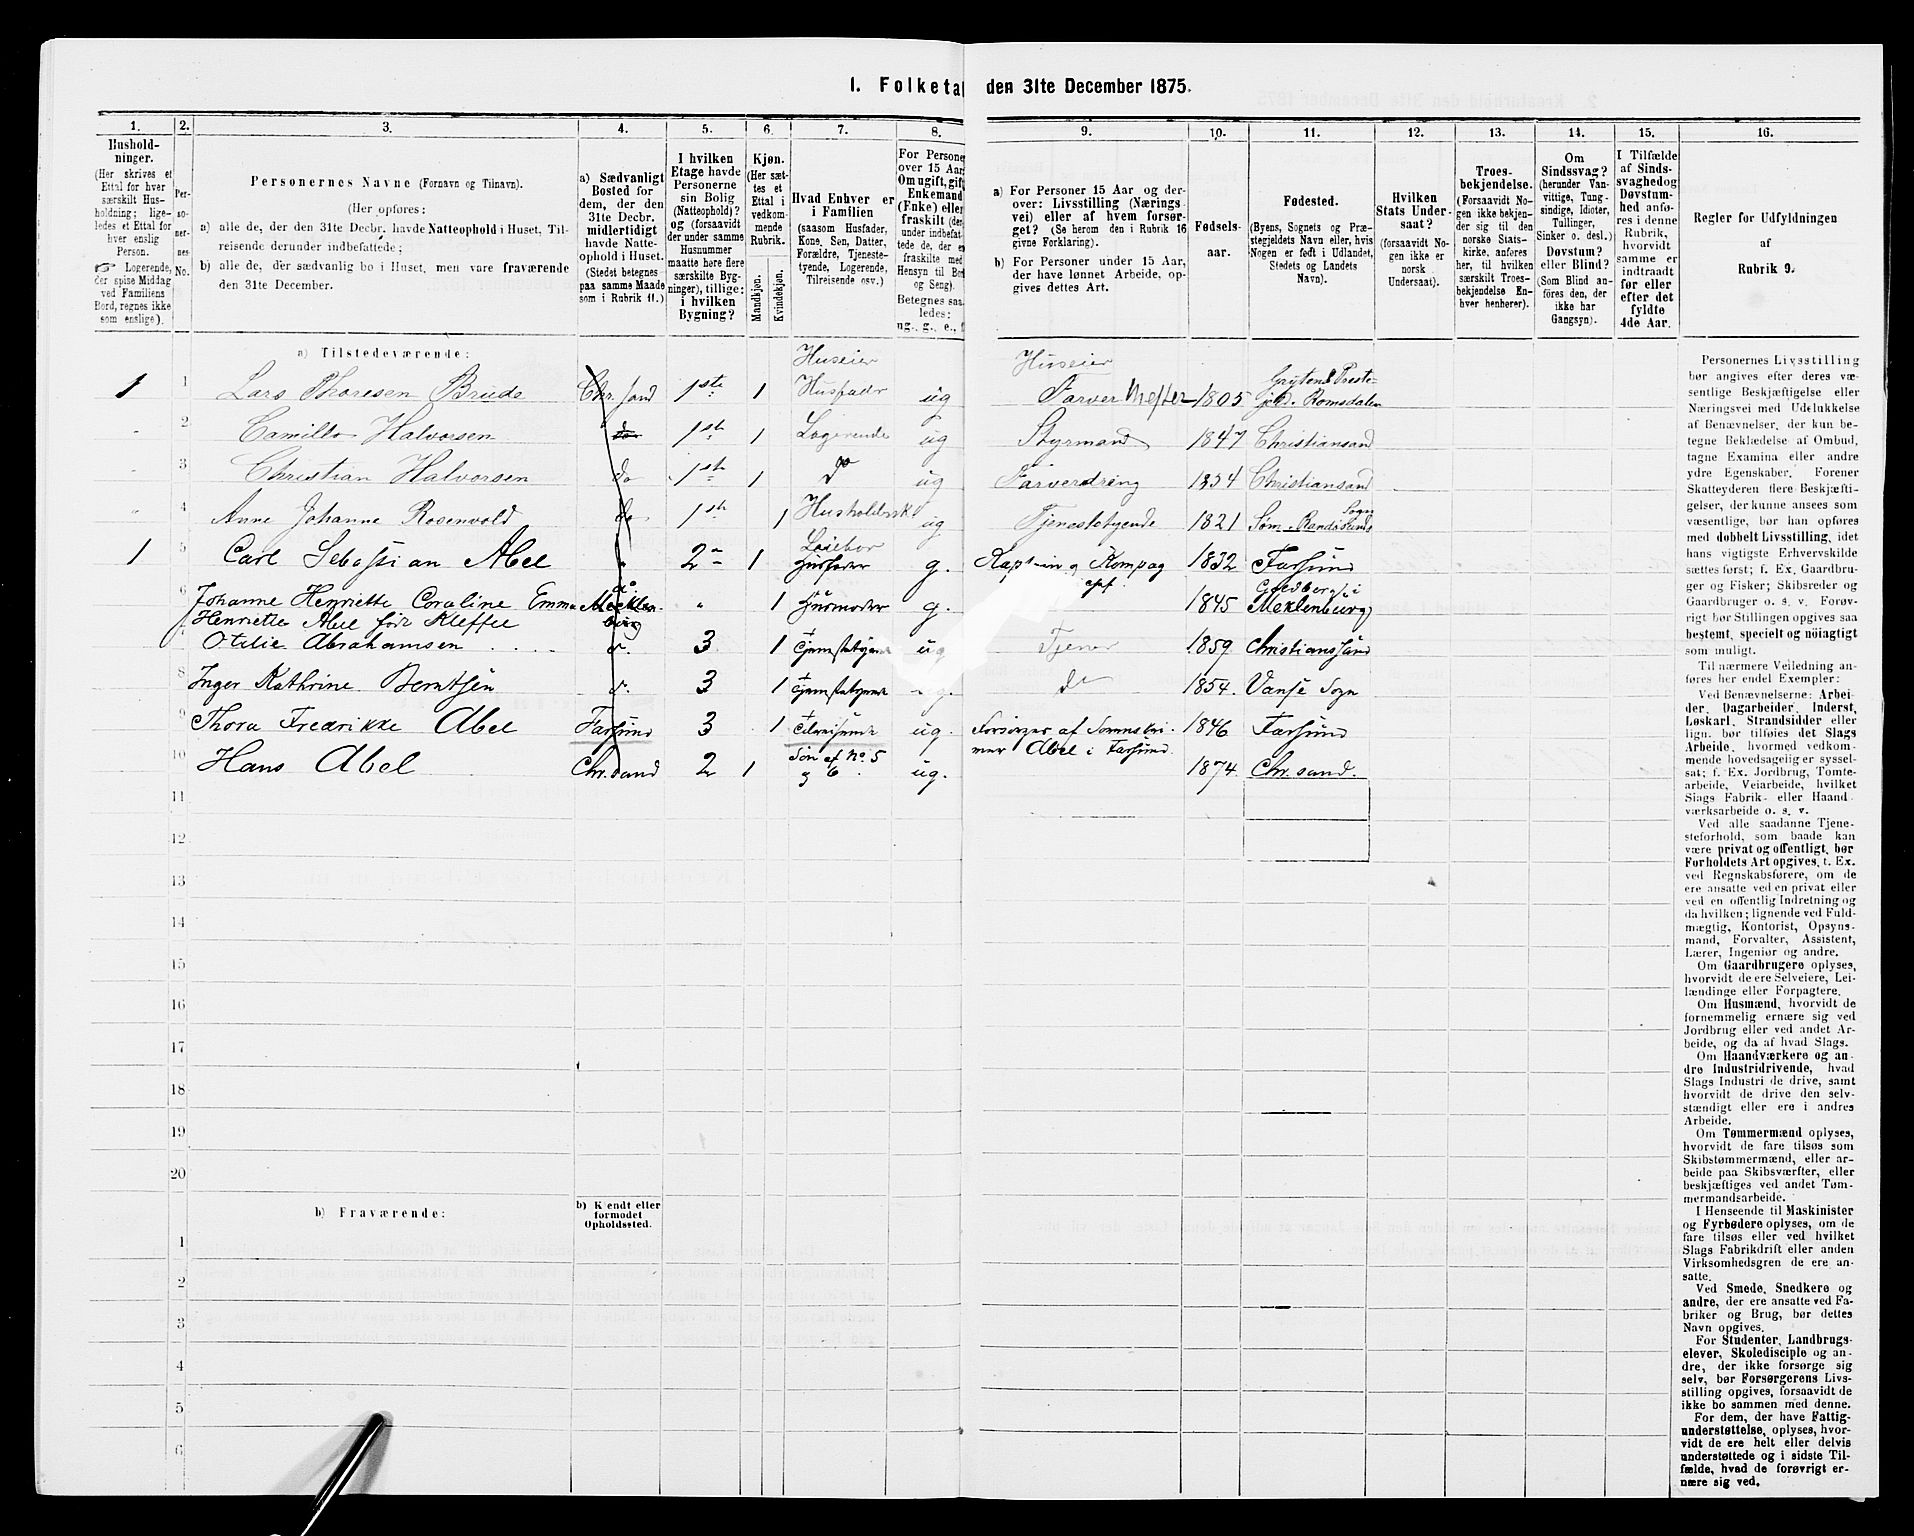 1. Folketal den 31te December 1875.
1. 2. 3. 4. 5. 6. 7. 8. 9. 10. 11. 12. 13. 14. 15. 16.
Hushold-
ninger.
(Her skrives et
Ettal for hver
særskilt Hus-
holdning; lige-
ledes et Ettal for
hver enslig
Person.
☞ Logerende,
der spise Middag
ved Familiens
Bord, regnes ikke
som enslige).
Per-
so-
ner-
nes
No.
Personernes Navne (Fornavn og Tilnavn).
(Her opføres:
a) alle de, der den 31te Decbr. havde Natteophold i Huset, Til-
reisende derunder indbefattede;
b) alle de, der sædvanlig bo i Huset, men vare fraværende
den 31te December.
a) Sædvanligt
Bosted for
dem, der den
31te Decbr.
midlertidigt
havde Natte-
ophold i Huset.
(Stedet betegnes
paa samme Maade
som i Rubrik 11.)
I hvilken
Etage havde
Personerne
sin Bolig
(Natteophold)?
og (forsaavidt
der under samme
Husnummer
maatte høre flere
særskilte Byg-
ninger), tillige:
i hvilken
Bygning?
Kjøn.
(Her sæt-
tes et
Ettal i
vedkom-
mende
Rubrik.)
Mandkjøn.
Kvindekjøn.
Hvad Enhver er
i Familien
(saasom Husfader,
Kone, Søn, Datter,
Forældre, Tjeneste-
tyende, Logerende,
Tilreisende osv.)
For Persone
over 15 Aar
Om ugift, gift
Enkemand
(Enke) elle
fraskilt (der
under indbefat-
tede de, der e
fraskilte med
Hensyn til Bo
og Seng).
Betegnes saa
ledes:
ug., g., e., f
a) For Personer 15 Aar og der-
over: Livsstilling (Nærings-
vei) eller af hvem forsør-
get? (Se herom den i Rubrik 16
givne Forklaring).
b) For Personer under 15 Aar,
der have lønnet Arbeide, op-
gives dettes Art.
Fødsels-
aar.
Fødested.
(Byens, Sognets og Præ-
stegjeldets Navn eller, hvis
Nogen er født i Udlandet,
Stedets og Landets
Navn).
Hvilken
Stats Under-
saat?
(forsaavidt No-
gen ikke er
norsk
Undersaat).
Troes-
bekjendelse.
(Forsaavidt No-
gen ikke bekjen-
der sig til den
norske Stats-
kirke, anføres
her, til hvilken
særskilt Troes-
bekjendelse En-
hver henhører).
Om
Sindssvag?
(herunder Van-
vittige, Tung-
sindige, Idioter,
Tullinger,
Sinker o. desl.)
Døvstum?
eller Blind?
(Som Blind an-
føres den, der
ikke har
Gangsyn).
I Tilfælde
af Sinds-
svaghed og
Døvstum-
hed anfø-
res i denne
Rubrik,
hvorvidt
samme er
indtraadt
før eller
efter det
fyldte
4de Aar.
Regler for Udfyldningen
af
Rubrik 9.
a) Tilstedeværende:
Huseier Huseier
1 1 Lars Thoresen Brude Chr. sand 1ste 1 Husfader ug Farver 1805 Grytens Preste-
gjeld. Romsdalen
2 Camillo Halvorsen do 1ste 1 Logerende ug Styrmand 1847 Christiansand
3 Christian Halvorsen do 1ste 1 do ug Farverdreng 1854 Christiansand
4 Anne Johanne Rosenvold do 1ste 1 ug Tjenestetyende 1821 Søm - Randøsunds Sogn
1 5 Carl Sebastian Abel " 2 1 Leiebor Husfader g. Kaptein og Kompag chef. 1832 Farsund
6 Johanne Henriette Coraline Emma Mecklen- " 1 Husmoder g. 1845 Goldberg i Meklenburg
Henriette Abel født Kleffel burg
7 Otilie Abrahamsen d. 3 1 Tjenestetyende ug Tjener 1859 Christianssand
8 Inger Kathrine Berntsen d. 3 1 Tjenestetyende ug. do 1854. Vanse Sogn
9 Thora Fredrikke Abel Farsund 3 1 Tilreisende ug. Forsørges af 1846 Farsund
Abel i Farsund.
10 Hans Abel Chr.sand 2 1 Søn af No. 5 og 6. ug. 1874 Chr. sand.
11
12
13
14
15
16
17
18
19
20
b) Fraværende:
b) Kjendt eller
formodet
Opholdssted.
1
2
3
4
5
6
Personernes Livsstilling
bør angives efter deres væ-
sentlige Beskjæftigelse eller
Næringsvei med Udelukkelse
af Benævnelser, der kun be-
tegne Beklædelse af Ombud,
tagne Examina eller andre
ydre Egenskaber. Forener
Skatteyderen flere Beskjæfti-
gelser, der kunne ansees som
væsentlige, bør han opføres
med dobbelt Livsstilling, idet
hans vigtigste Erhvervskilde
sættes først; f. Ex. Gaardbru-
ger og Fisker; Skibsreder og
Gaardbruger o. s. v. Forøv-
rigt bør Stillingen opgives saa
bestemt, specielt og nøiagtigt
som muligt.
Til nærmere Veiledning an-
føres her endel Exempler:
Ved Benævnelserne: Arbei-
der, Dagarbeider, Inderst,
Løskarl, Strandsidder eller
lign. bør tilføies det Slags
Arbeide, hvormed vedkom-
mende hovedsagelig er syssel-
sat; f. Ex. Jordbrug, Tomte-
arbeide, Veiarbeide, hvilket
Slags Fabrik- eller Haand-
værksarbeide o. s. v.
Ved alle saadanne Tjene-
steforhold, som baade kan
være privat og offentligt, bør
Forholdets Art opgives, t. Ex.
ved Regnskabsførere, om de
ere ansatte ved en privat eller
ved en offentlig Indretning og
da hvilken; lignende ved Fuld-
mægtig, Kontorist, Opsyns-
mand, Forvalter, Assistent,
Lærer, Ingeniør og andre.
Om Gaardbrugere oplyses,
hvorvidt de ere Selveiere, Lei-
lændinge eller Forpagtere.
Om Husmænd, hvorvidt de
fornemmelig ernære sig ved
Jordbrug eller ved andet Ar-
beide, og da af hvad Slags.
Om Haandværkere og an-
dre Industridrivende, hvad
Slags Industri de drive, samt
hvorvidt de drive den selv-
stændigt eller ere i andres
Arbeide.
Om Tømmermænd oplyses,
hvorvidt de fare tilsøs som
Skibstømmermænd, eller ar-
beide paa Skibsværfter, eller
beskjæftiges ved andet Tøm-
mermandsarbeide.
I Henseende til Maskinister
og Fyrbødere oplyses, om de
fare tilsøs eller ved hvilket
Slags Fabrikdrift eller anden
Virksomhedsgren de ere an-
satte.
Ved Smede, Snedkere og
andre, der ere ansatte ved Fa-
briker og Brug, bør dettes
Navn opgives.
For Studenter, Landbrugs-
elever, Skoledisciple og an-
dre, der ikke forsørge sig
selv, bør Forsørgerens Livs-
stilling opgives, forsaavidt de
ikke bo sammen med denne.
For dem, der have Fattig-
understøttelse, oplyses, hvor-
vidt de ere helt eller delvis
understøttede og i sidste Til-
fælde, hvad de forøvrigt er-
nære sig ved.